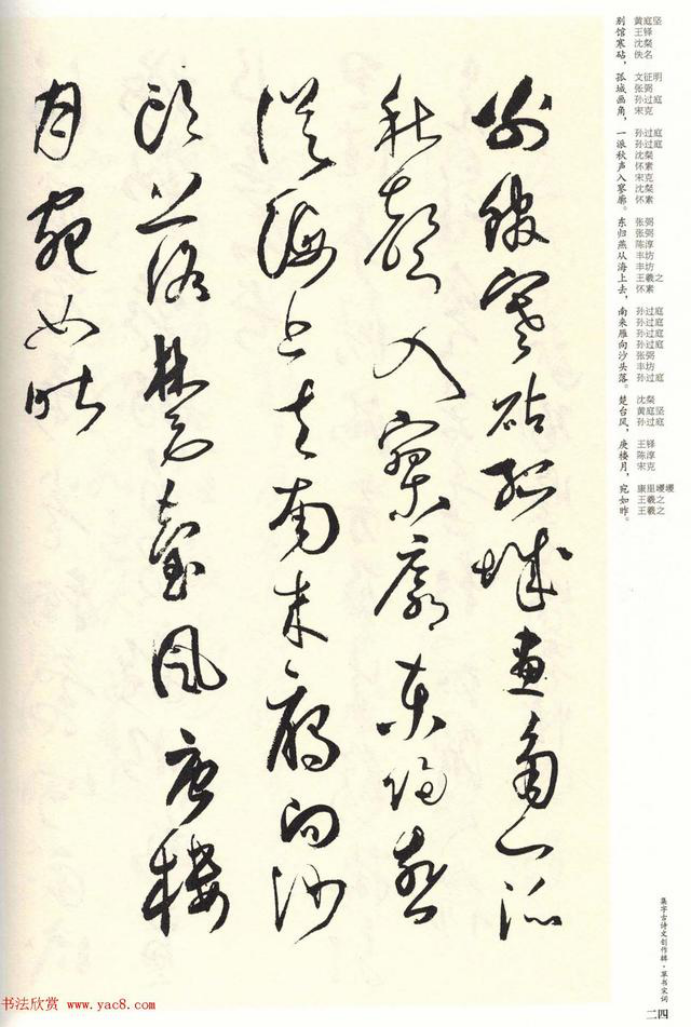 别馆寒砧，孤城画角，一派秋声入寥廓。东归燕从海上去，南来雁向沙头落。楚台风，庾楼月，宛如昨。
黄庭坚
王铎
沈粲
佚名
文征明
张弼
孙过庭
宋克
孙过庭
孙过庭
沈粲
怀素
宋克
沈粲
怀素
张弼
张弼
陈淳
丰坊
丰坊
王羲之
怀素
孙过庭
孙过庭
孙过庭
孙过庭
张弼
丰坊
孙过庭
沈粲
黄庭坚
孙过庭
王铎
陈淳
宋克
康里巎巎
王羲之
王羲之
別館寒砧孤城畫角一派
秋聲入寥廓東歸燕
從海上去南來雁向沙
頭落楚臺風庾樓
月宛如昨
集字古诗文创作辑·草书宋词
二四
书法欣赏 www.yac8.com